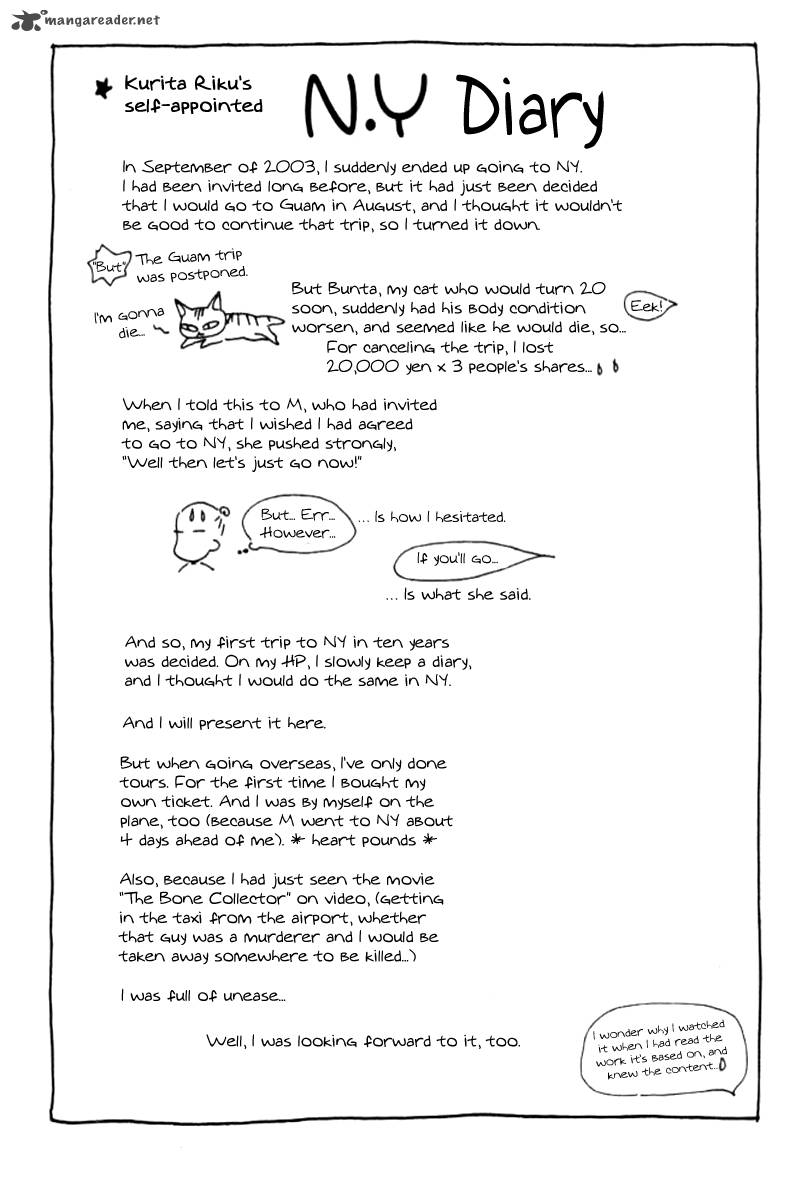 mangareader.net
Kurita Riku's
self-appointed
N.Y Diary
In September of 2003, I suddenly ended up going to NY.
I had been invited long before, but it had just been decided
that I would go to Guam in August, and I thought it wouldn't
be good to continue that trip, so I turned it down.
"But"
The Guam trip
was postponed.
I'm gonna
die...
But Bunta, my cat who would turn 20
soon, suddenly had his body condition
worsen, and seemed like he would die, so...
Eek!
For canceling the trip, I lost
20,000 yen x 3 people's shares...
When I told this to M, who had invited
me, saying that I wished I had agreed
to go to NY, she pushed strongly,
"Well then let's just go now!"
But... Err...
However...
... Is how I hesitated.
If you'll go...
... Is what she said.
And so, my first trip to NY in ten years
was decided. On my HP, I slowly keep a diary,
and I thought I would do the same in NY.
And I will present it here.
But when going overseas, I've only done
tours. For the first time I bought my
own ticket. And I was by myself on the
plane, too (because M went to NY about
4 days ahead of me). * heart pounds *
Also, because I had just seen the movie
"The Bone Collector" on video, (getting
in the taxi from the airport, whether
that guy was a murderer and I would be
taken away somewhere to be killed...)
I was full of unease...
Well, I was looking forward to it, too.
I wonder why I watched
it when I had read the
work it's based on, and
knew the content...